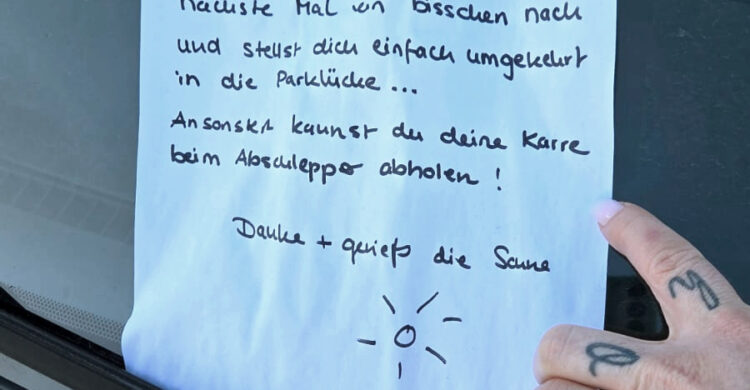 nächste Mal ein bisschen nach
und stellst dich einfach umgekehrt
in die Parklücke ...
Ansonsten kannst du deine Karre
beim Abschlepper abholen !
Danke + genieß die Sonne